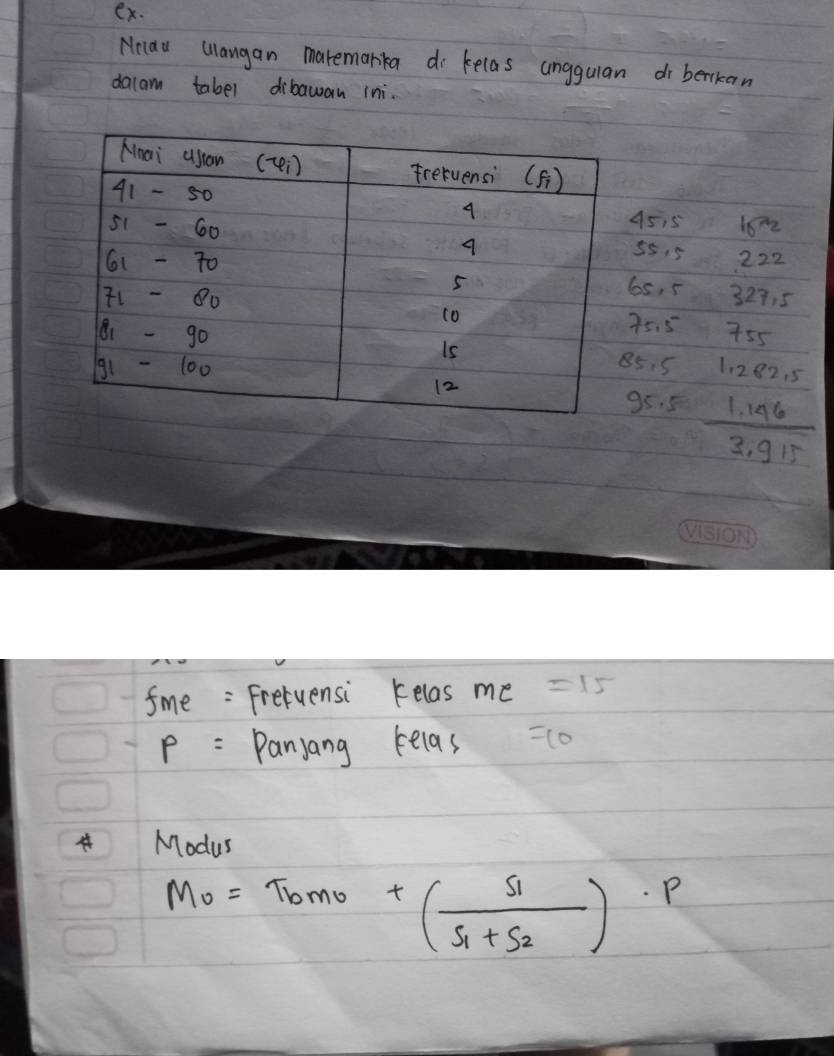 ex.
Nilai ulangan matematika di kelas unggulan di berikan
dalam tabel dibawah ini.
Nilai Ujian (xi) Frekuensi (fi)
41 - 50 4 45,5 182
51 - 60 4 55,5 222
61 - 70 5 65,5 327,5
71 - 80 10 75,5 755
81 - 90 15 85,5 1.282,5
91 - 100 12 95,5 1.146
3.915
VISION
fme = Frekuensi kelas me = 15
- P = Panjang kelas = 10
* Modus
Mo = Tbmo + ( S1 / S1 + S2 ) . P